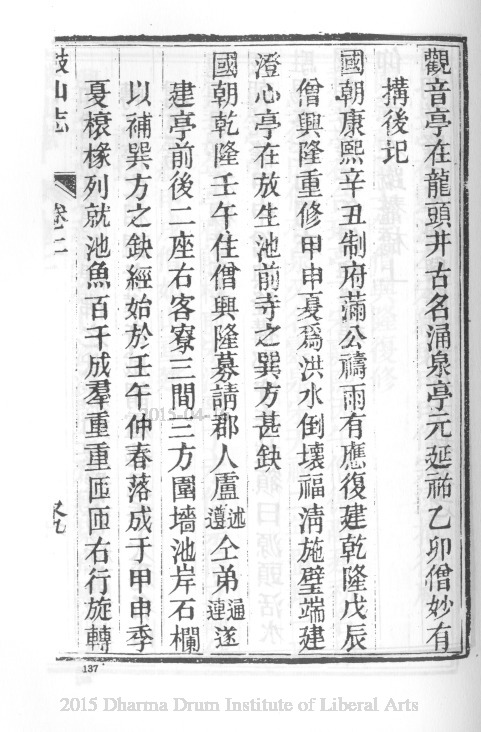 觀音亭在龍頭井古名涌泉亭元延祐乙卯僧妙有
搆後記
國朝康熙辛丑制府滿公禱雨有應復建乾隆戊辰
僧興隆重修甲申夏爲洪水倒壞福淸施璧端建
澄心亭在放生池前寺之巽方甚缺
國朝乾隆壬午住僧興隆募請郡人盧遵述仝弟連逼遂
建亭前後二座右客寮三間三方圍墻池岸石欄
以補巽方之缺經始於壬午仲春落成于甲申季
夏榱椽列就池魚百千成羣重重匝匝右行旋轉
鼓山志 卷之二
137
2015 Dharma Drum Institute of Liberal Arts